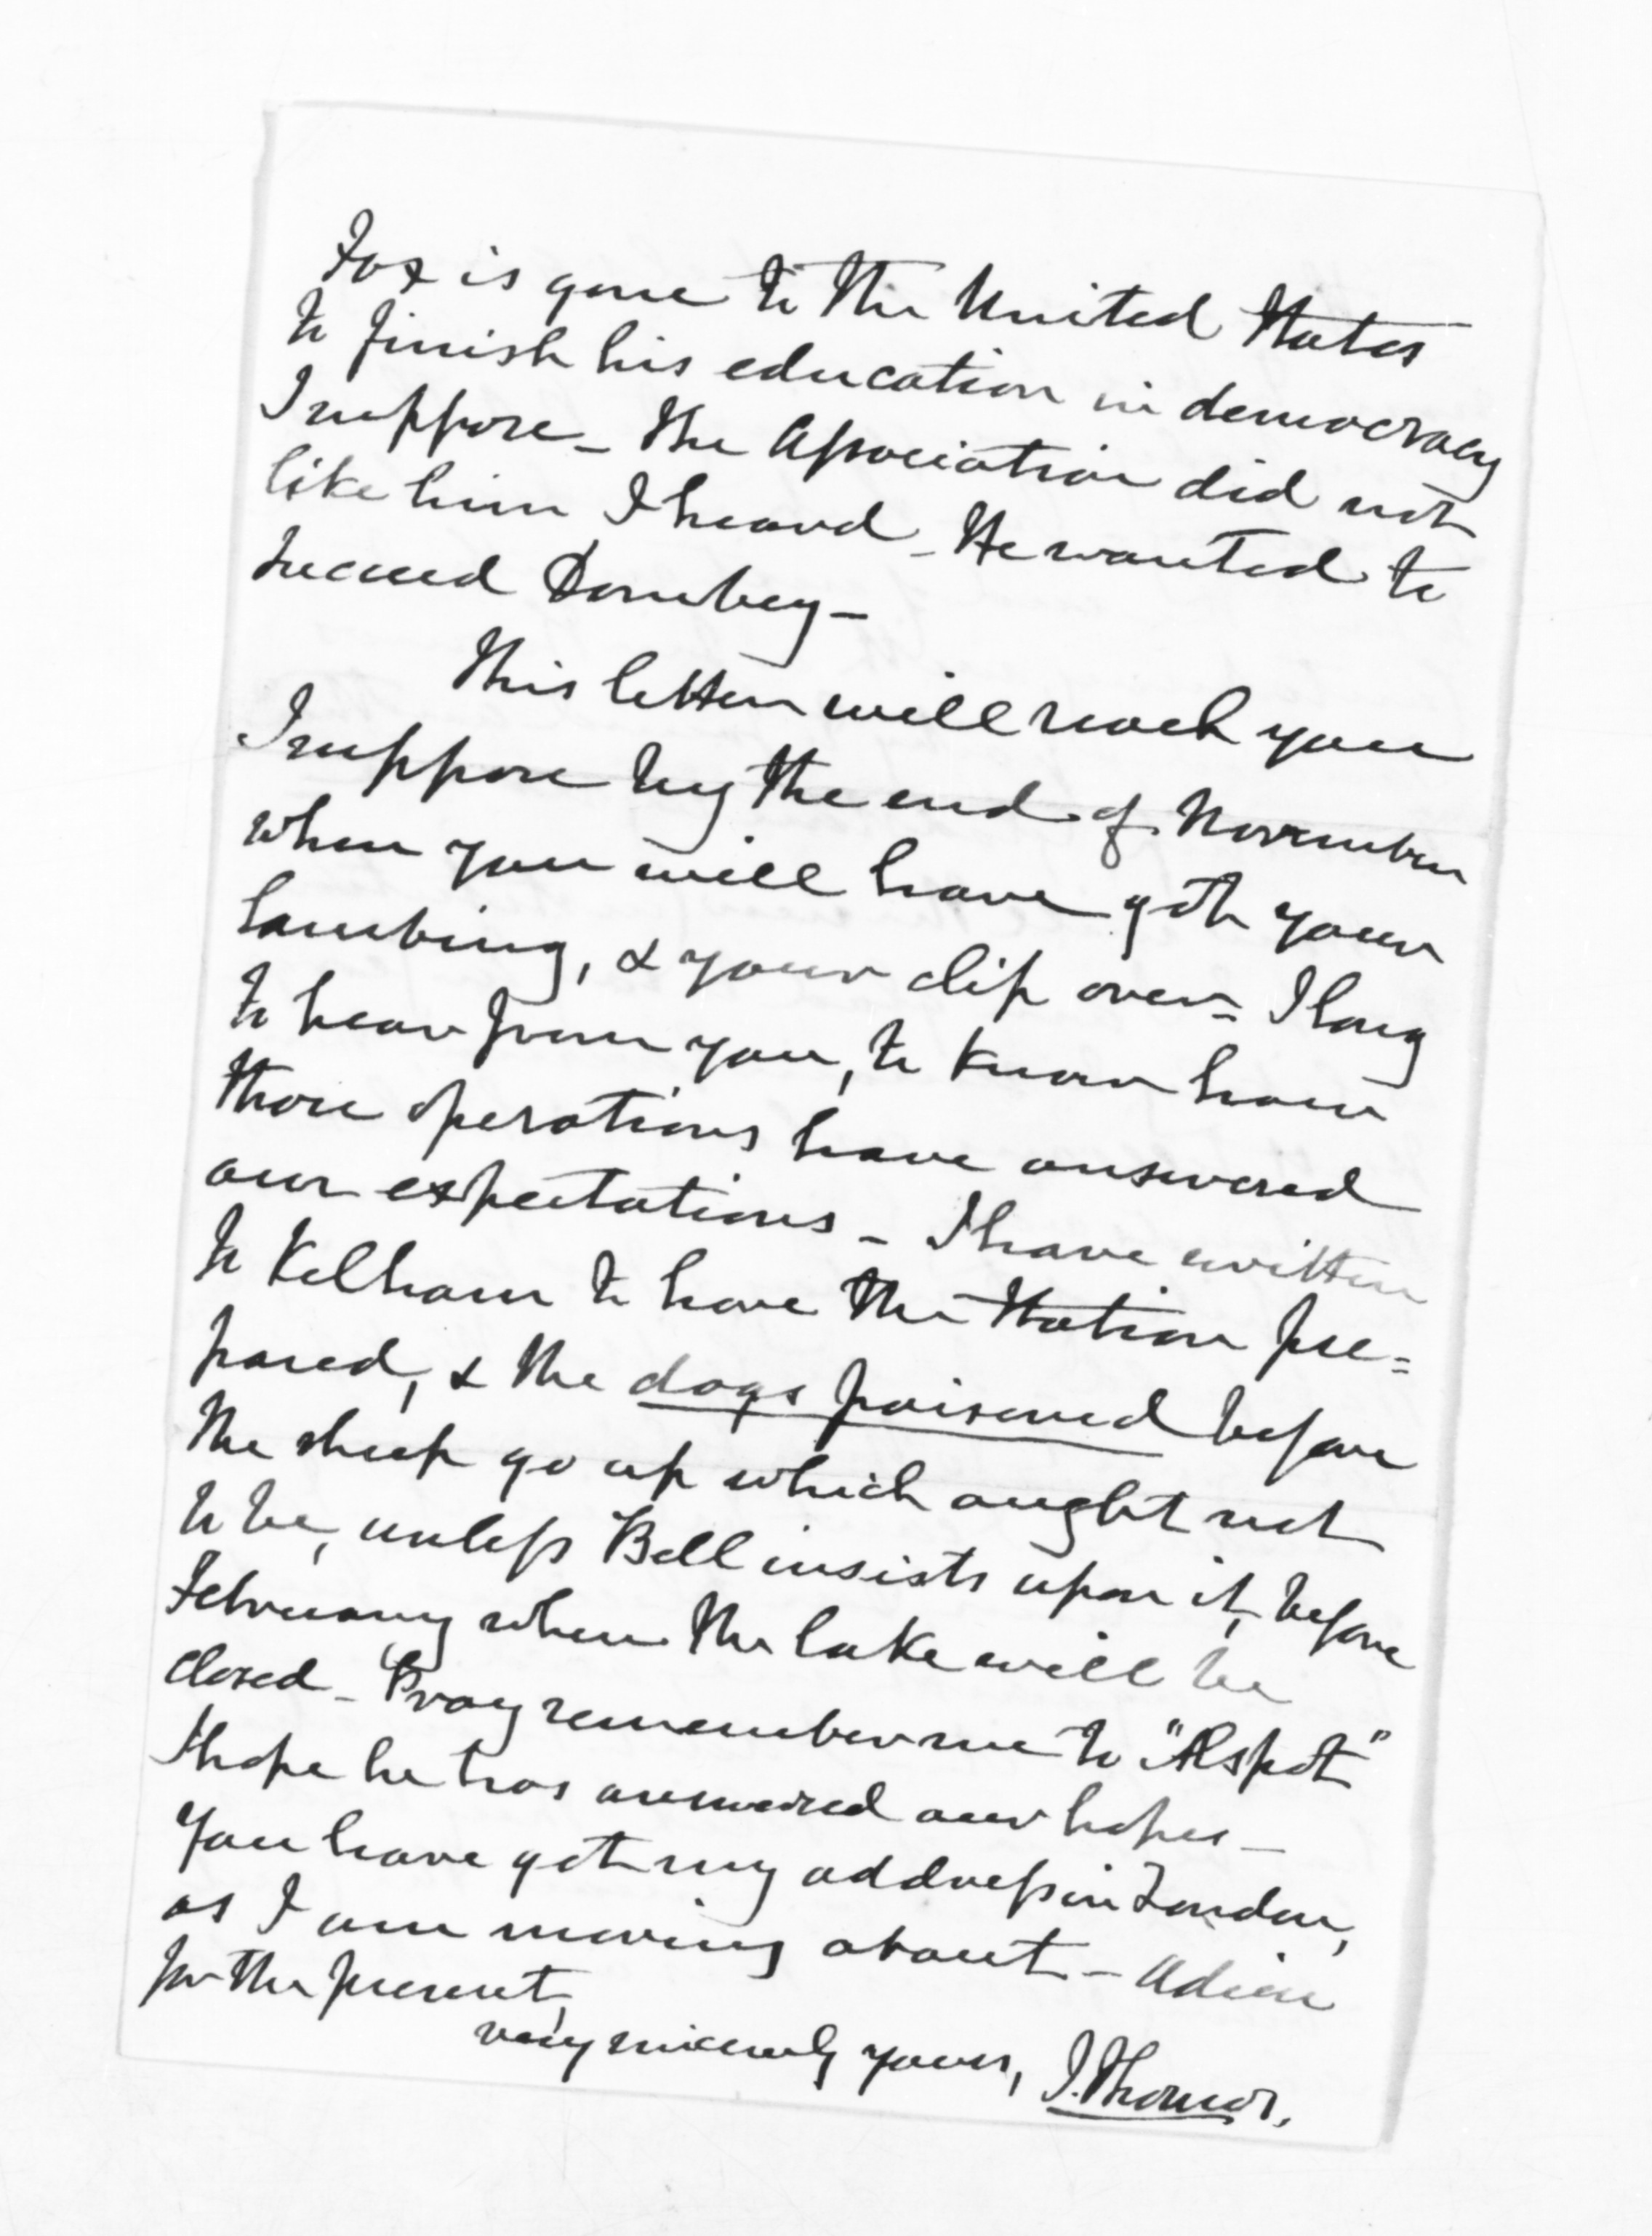 Fox is gone to the United States
to finish his education in democracy
I suppose – The Association did not
like him I heard – He wanted to
succeed Dombey –
This letter will reach you
I suppose by the end of November
when you will have got your
lambing, & your clip over = I long
to hear from you, to know how
those operations have answered
our expectations – I have written
to Kelham to have the Station pre=
pared, & the dogs poisoned before
the sheep go up which ought not
to be, unless Bell insists upon it, before
February when the lake will be
closed – Pray remember me to
I hope he has answered our hopes –
You have got my address in London,
as I am moving about – Adieu
for the present,
very sincerely yours, J. Thomas.